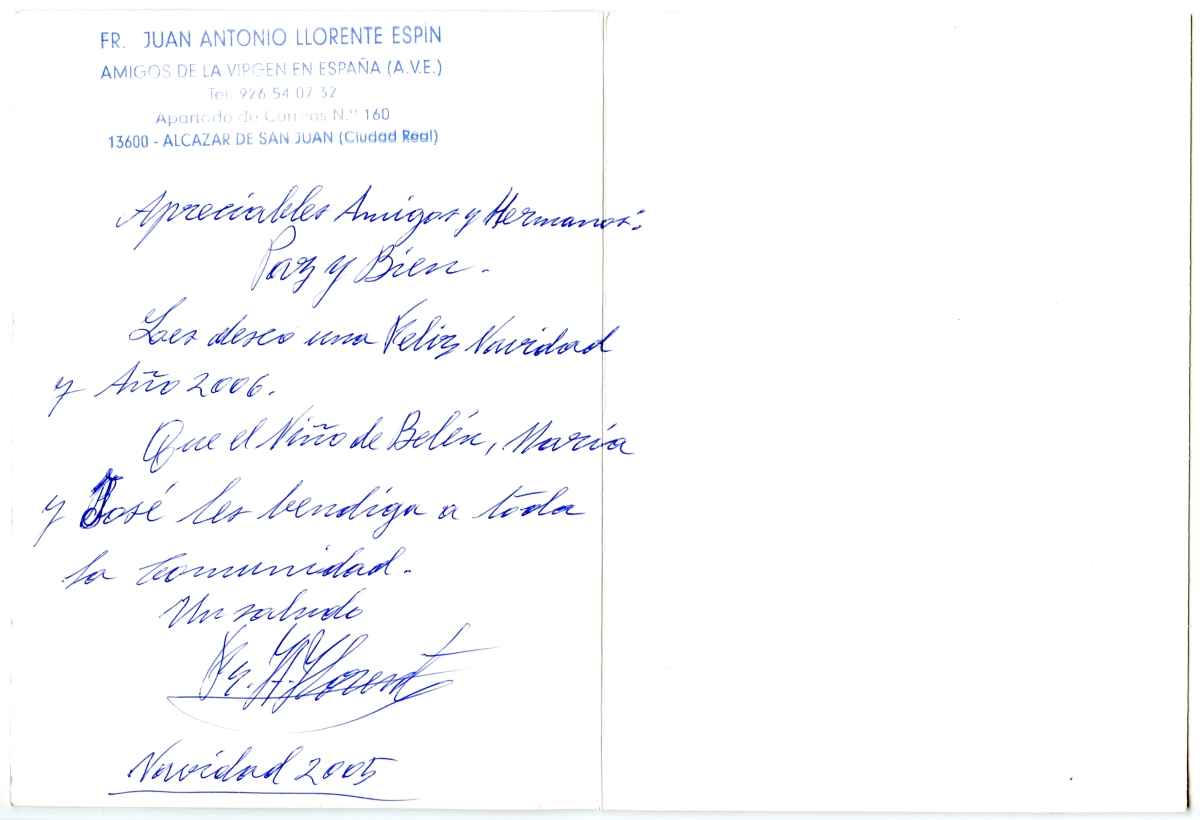 FR. JUAN ANTONIO LLORENTE ESPÍN
AMIGOS DE LA VIRGEN EN ESPAÑA (A.V.E.)
Tel. 926 54 07 32
Apartado de Correos N.º 160
13600 - ALCAZAR DE SAN JUAN (Ciudad Real)
Apreciables Amigos y Hermanos:
Paz y Bien.
Les deseo una Feliz Navidad
y Año 2006.
Que el Niño de Belén, María
y José les bendiga a toda
la Comunidad.
Un saludo
Fr. J. A. Llorente
Navidad 2005